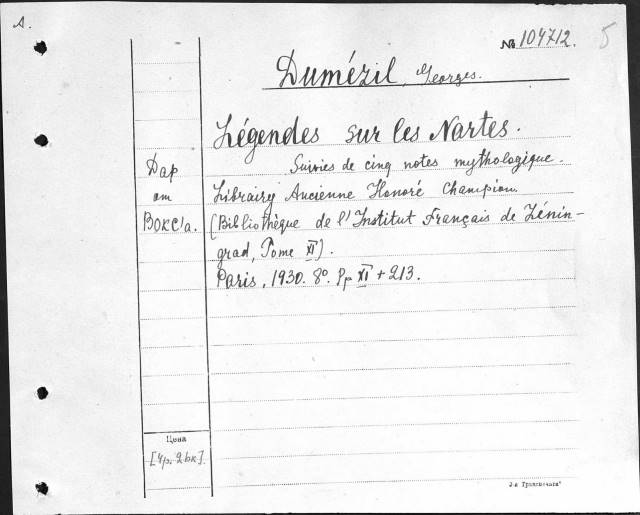 A.
№ 104712. 5
Dumézil, Georges.
Légendes sur les Nartes.
Suivies de cinq notes mythologique.
Librairy Ancienne Honoré Champion.
(Bibliothèque de l'Institut Français de Lénin-
grad, Tome XI).
Paris, 1930. 8º. Pp XI + 213.
Дар
от
ВОКС'а.
Цена
[4р. 2вк].